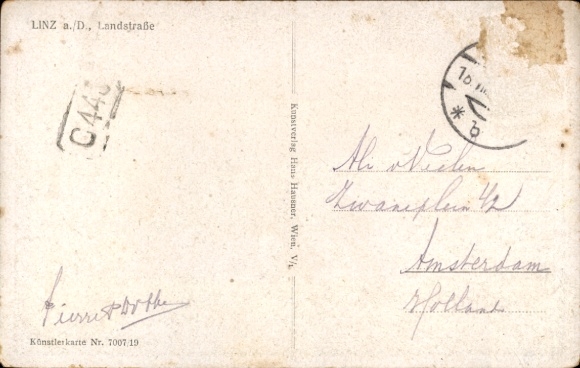 LINZ a./D., Landstraße
C 443
Kunstverlag Hans Hausner, Wien, V/1.
* b
Zwaneplein 42
Amsterdam
Holland
Pierre
Künstlerkarte Nr. 7007/19